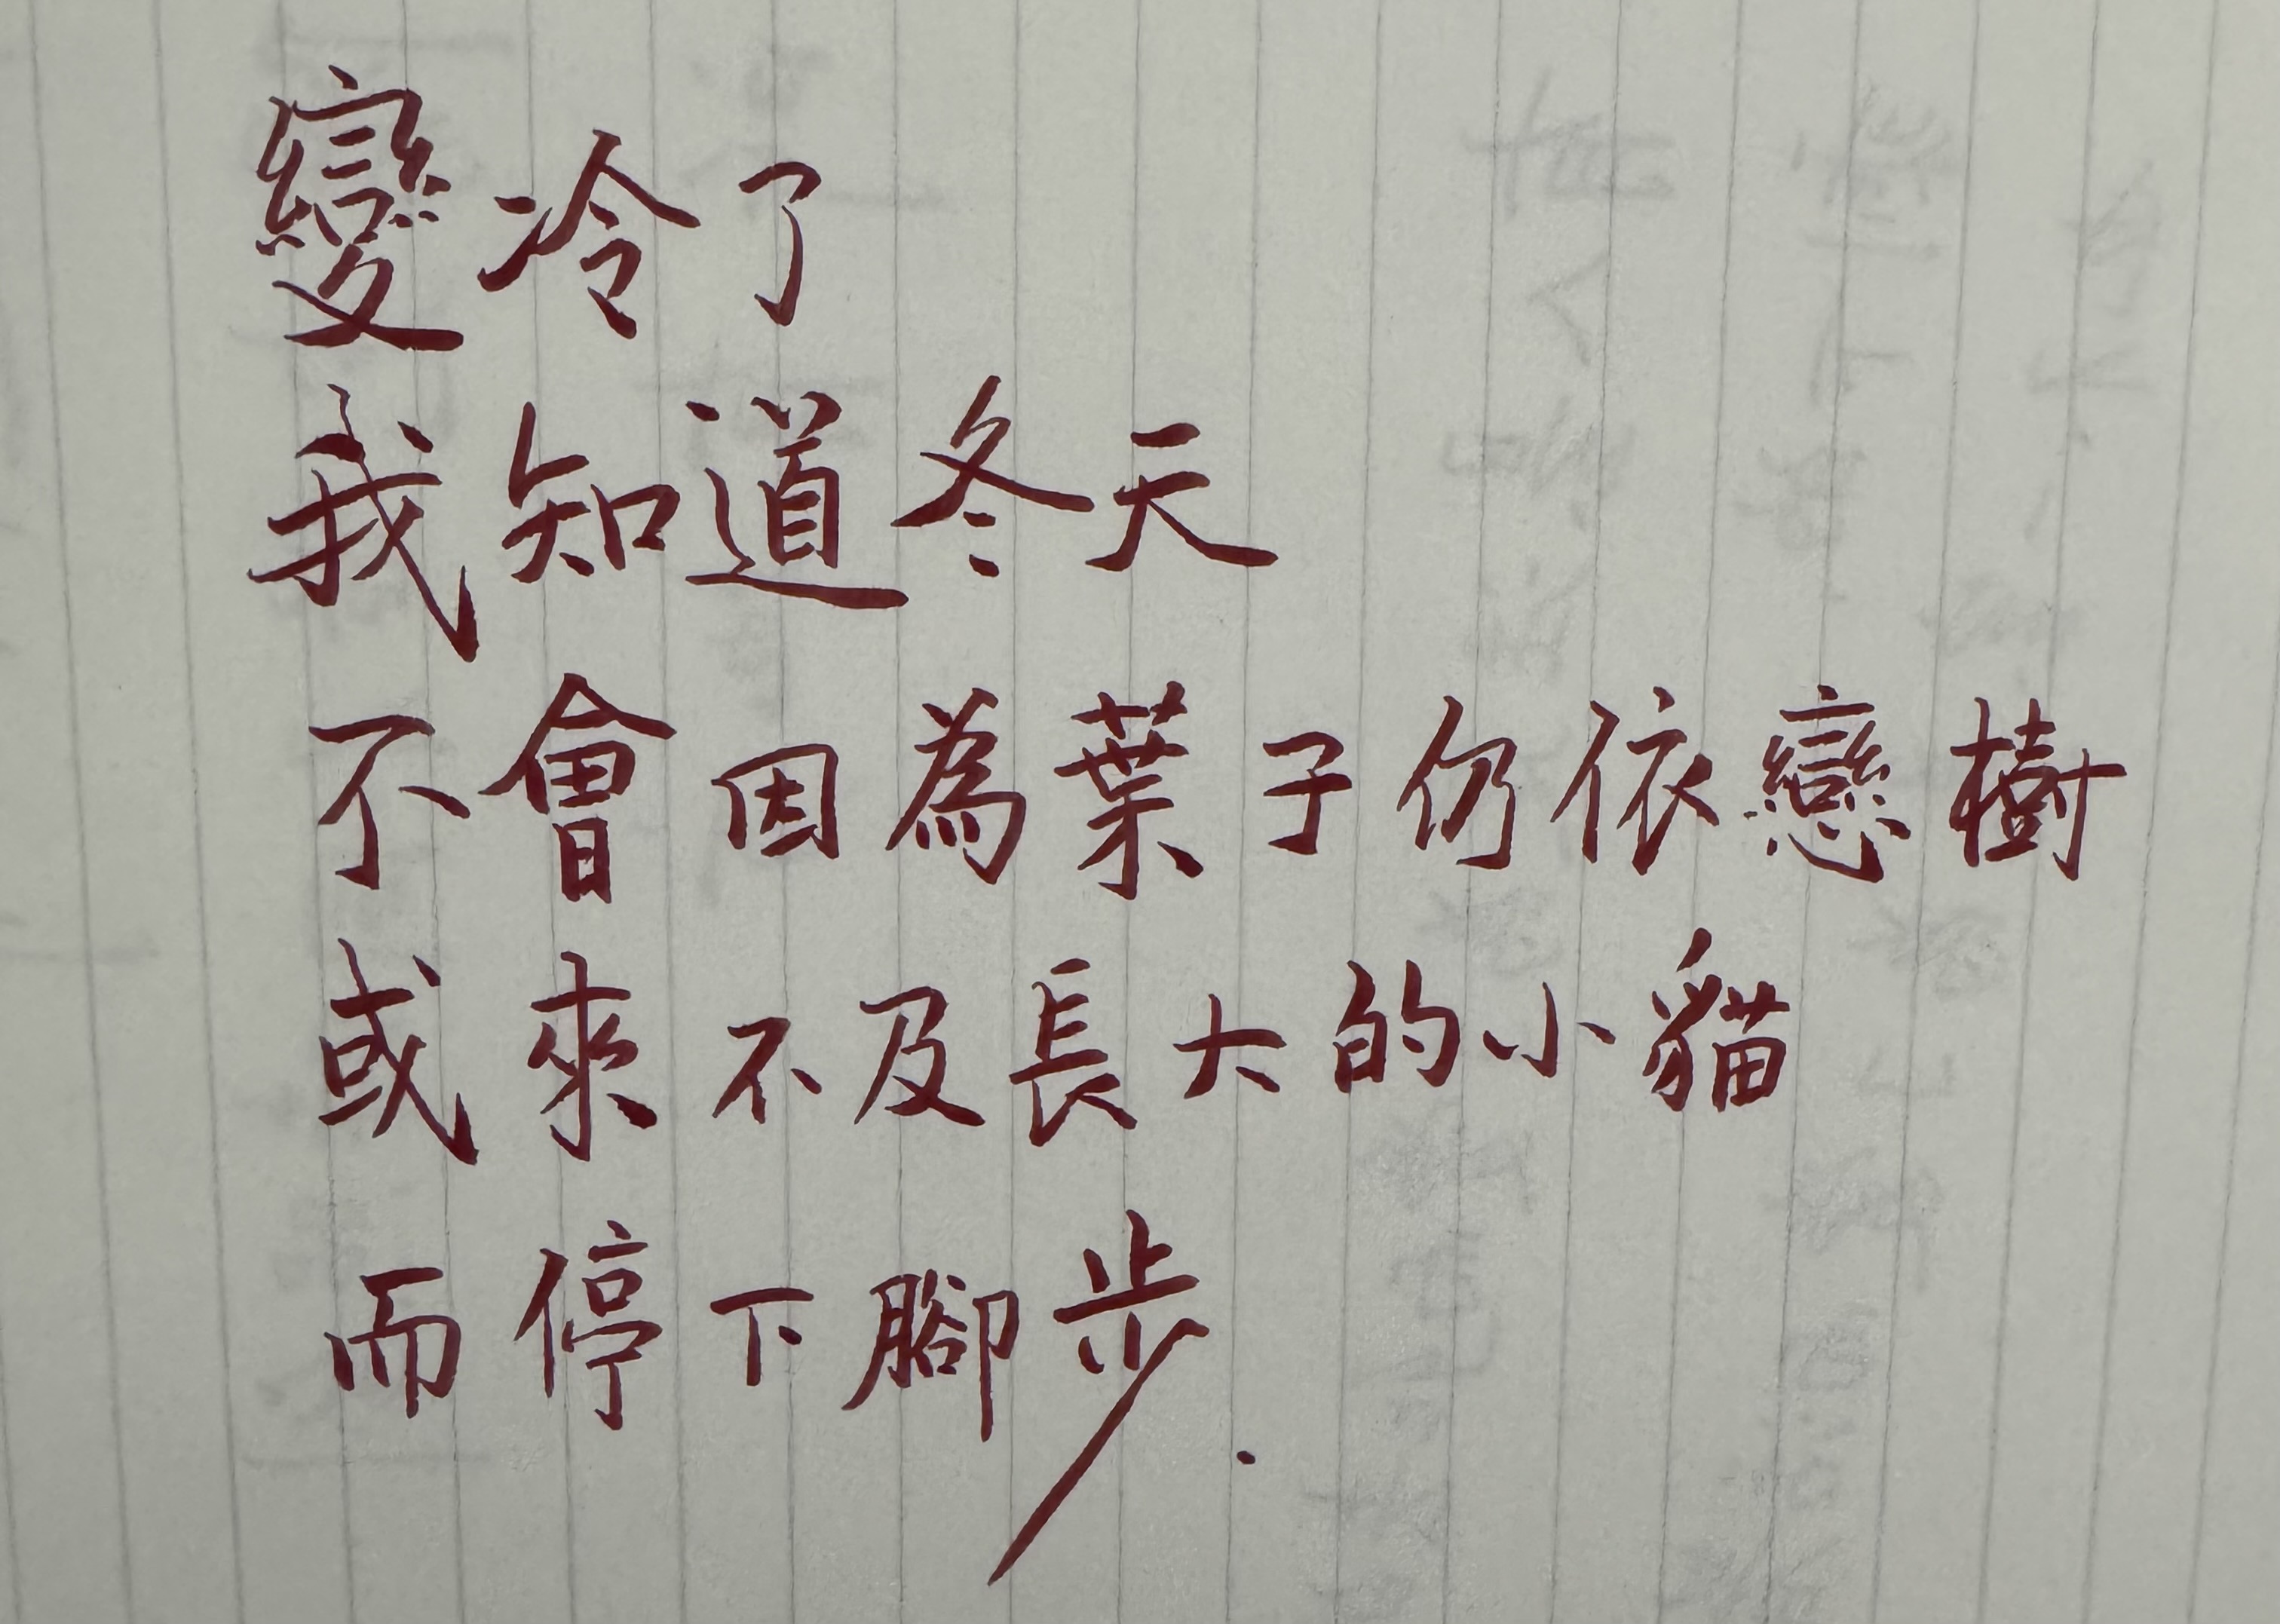 變冷了
我知道冬天
不會因為葉子仍依戀樹
或來不及長大的小貓
而停下腳步.